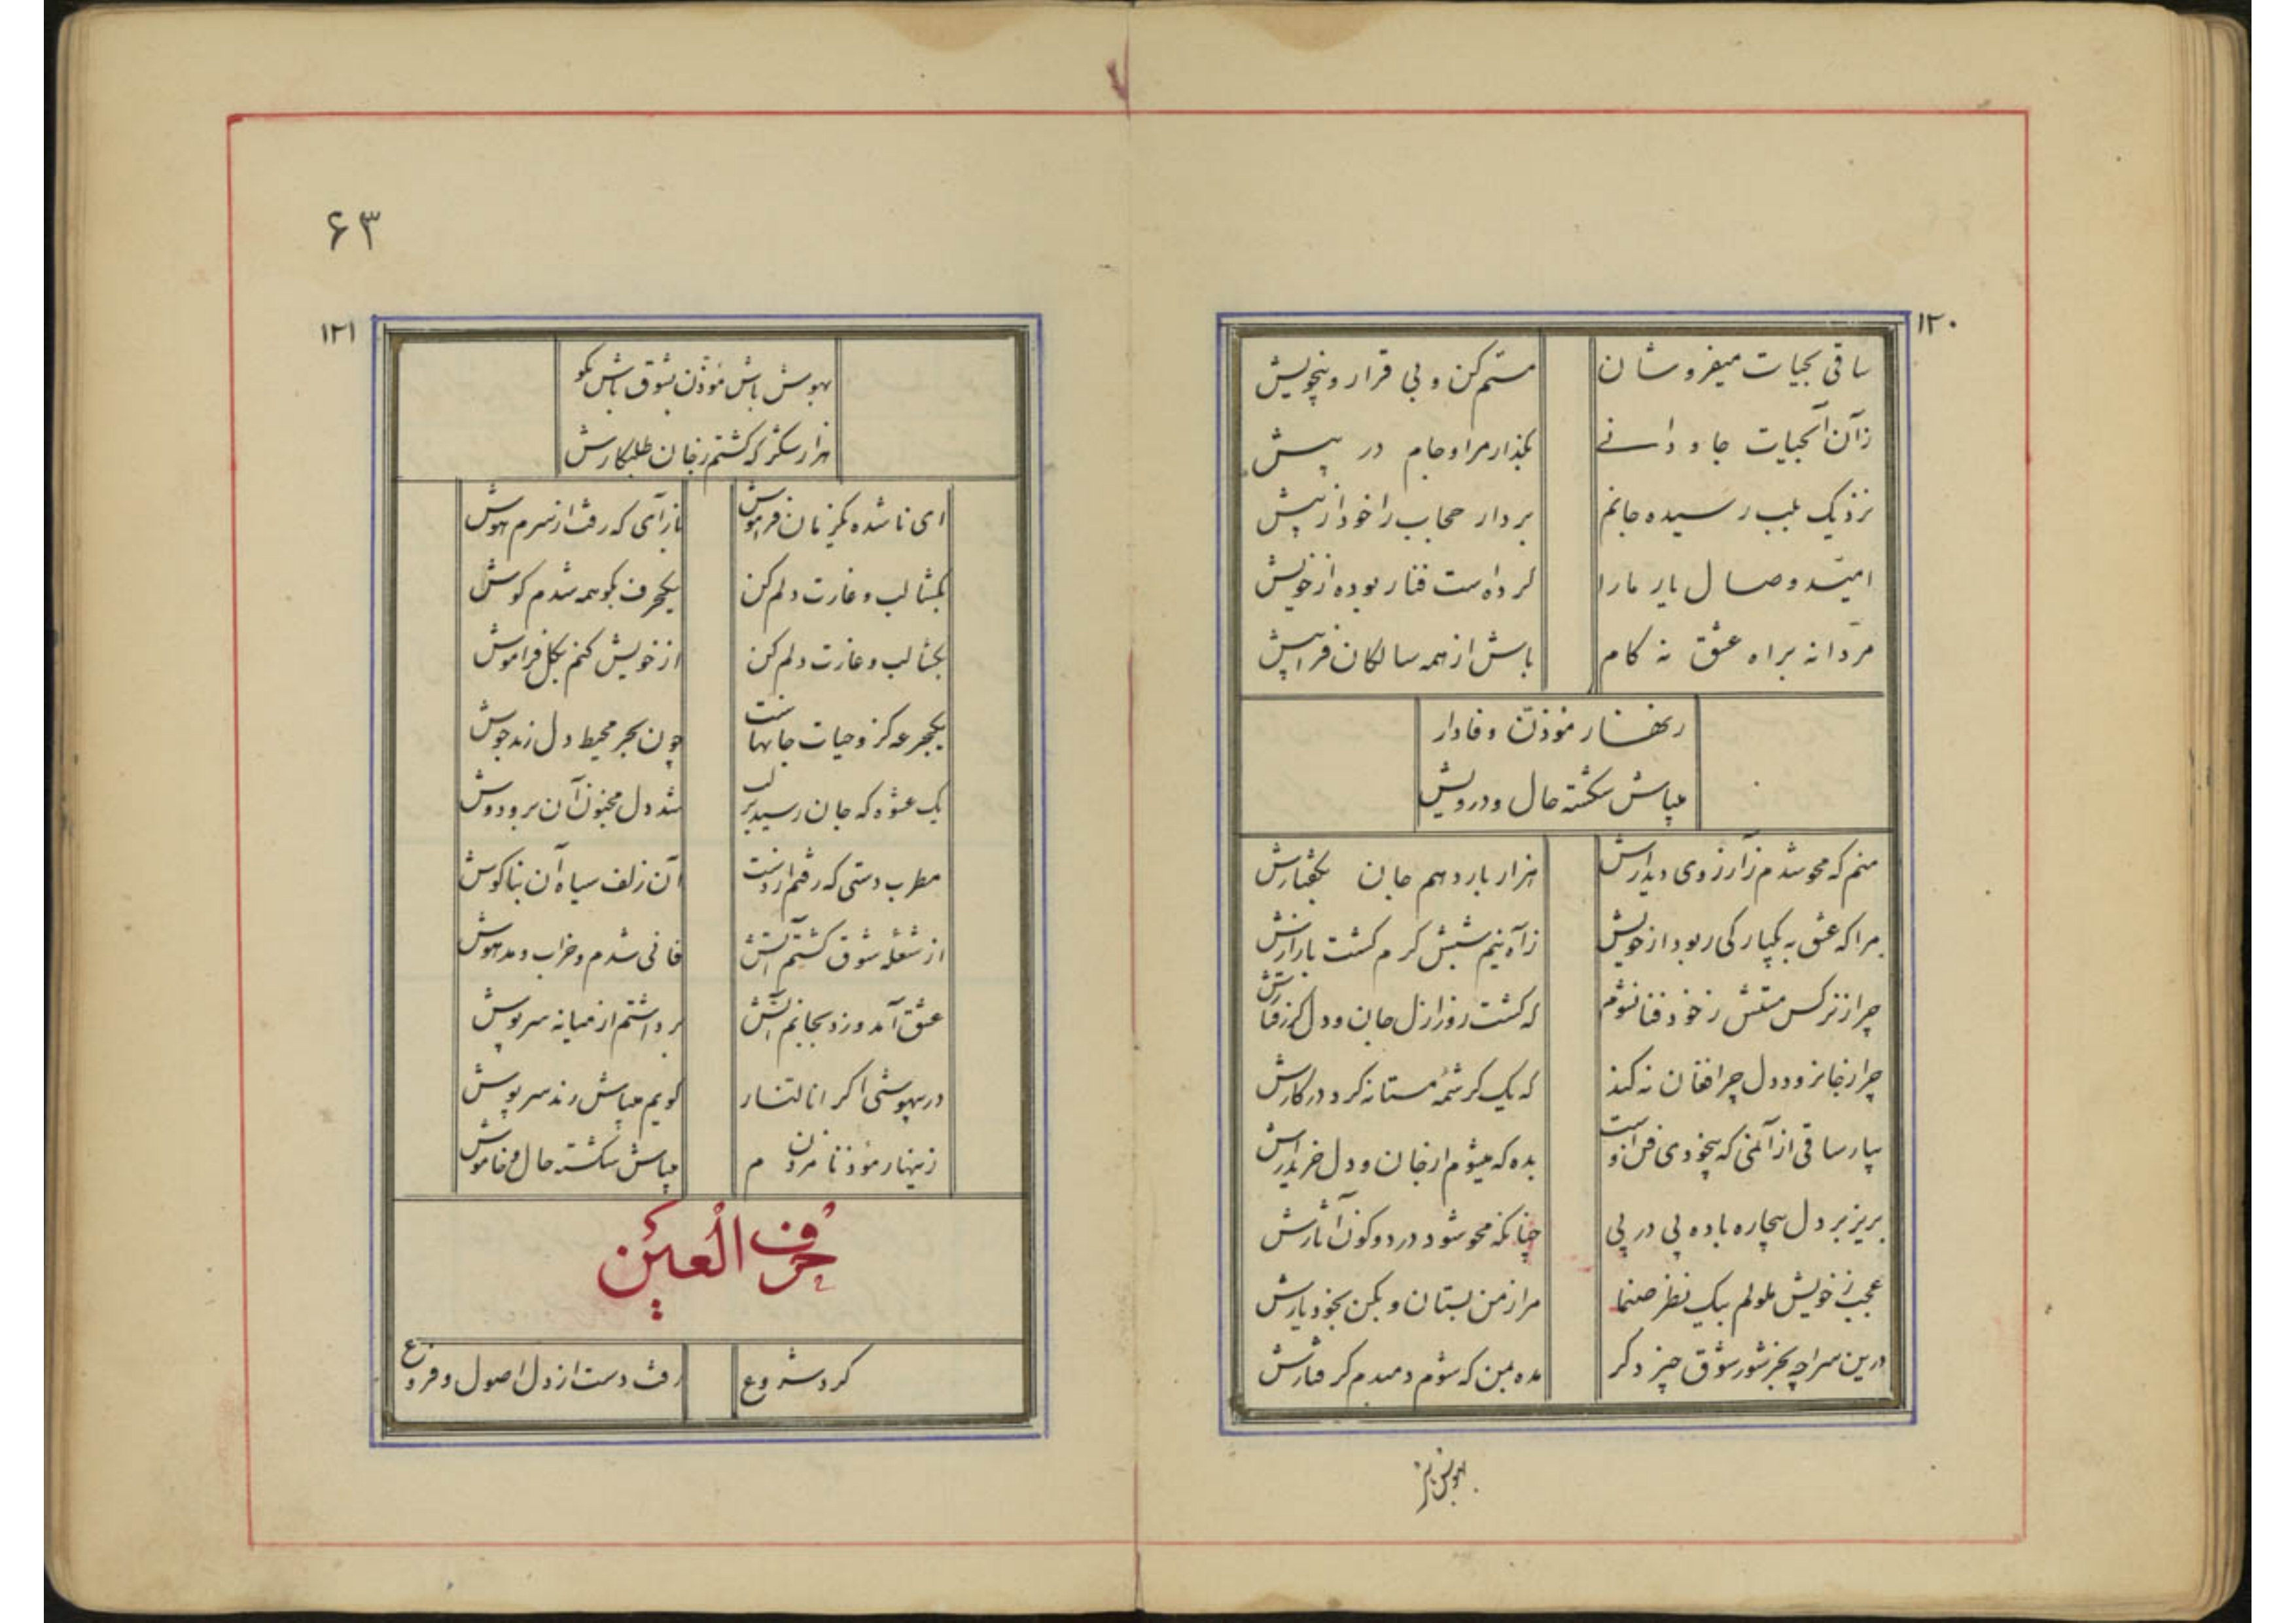 ۱۲۰
ساقی بحیات میفروشان مستم کن و بی قرار و بیخویش
زآن آبحیات جاودانے بگذار مرا و جام در پیش
نزدیک بلب رسیده جانم بردار حجاب را خود از پیش
امید وصال یار مارا کرداست فنا ربوده از خویش
مردانه براه عشق نه کام باش از همه سالکان فرا پیش
زنهار مؤذن وفادار
میباش شکسته حال و درویش
منم که محو شدم زآرزوی دیدارش هزار بار دهم جان بگفتارش
مرا که عشق به یکبارکی ربود از خویش زآه نیم شبش کرم کشت بازارش
چرا زنرکس مستش زخود فنا نشوم که کشت روز ازل جان و دل گرفتارش
چرا زجا نرود دل چرا فغان نه کند که یک کرشمه مستانه کرد در کارش
بیار ساقی از آلمئی که بیخودی فن اوست بده که میشوم از جان و دل خریدارش
بریز بر دل بیچاره باده پی در پی چنانکه محو شود در دو کون آثارش
عجب زخویش ملولم بیک نظر صنما مرا زمن بستان و بکن بخود یارش
درین سراچه بجز شور شوق چیز دکر مده بمن که شوم دمبدم کرفتارش
۶۳
۱۲۱
بهوش باش مؤذن بشوق باش بکو
هزار شکر که کشتم زجان طلبکارش
ای نا شده یکزمان فراموش بازآی که رفت از سرم هوش
بکشا لب و غارت دلم کن یکحرف بکو همه شدم کوش
بکشا لب و غارت دلم کن از خویش کنم بکل فراموش
یکجرعه کزو حیات جانهاست چون بحر محیط دل زند جوش
یک عشوه که جان رسید بر لب شد دل مجنون آن برودوش
مطرب دستی که رفتم از دست آن زلف سیاه آن بناکوش
از شعله شوق کشتم آتش فانی شدم و خراب و مدهوش
عشق آمد و زد بجانم آتش برداشتم از میانه سرپوش
در بیهوشی اکر انا لنار کویم میباش رند سرپوش
زینهار مؤذنا مزن دم میباش شکسته حال و خاموش
حَرف الْعَین
کرد شروع رفت دست از دل اصول و فروع